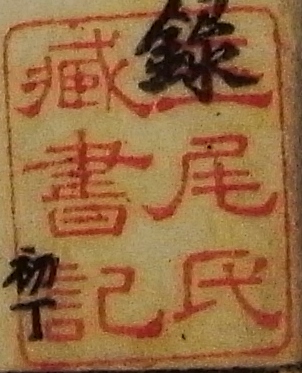 錄
尾氏
藏書記
初丁